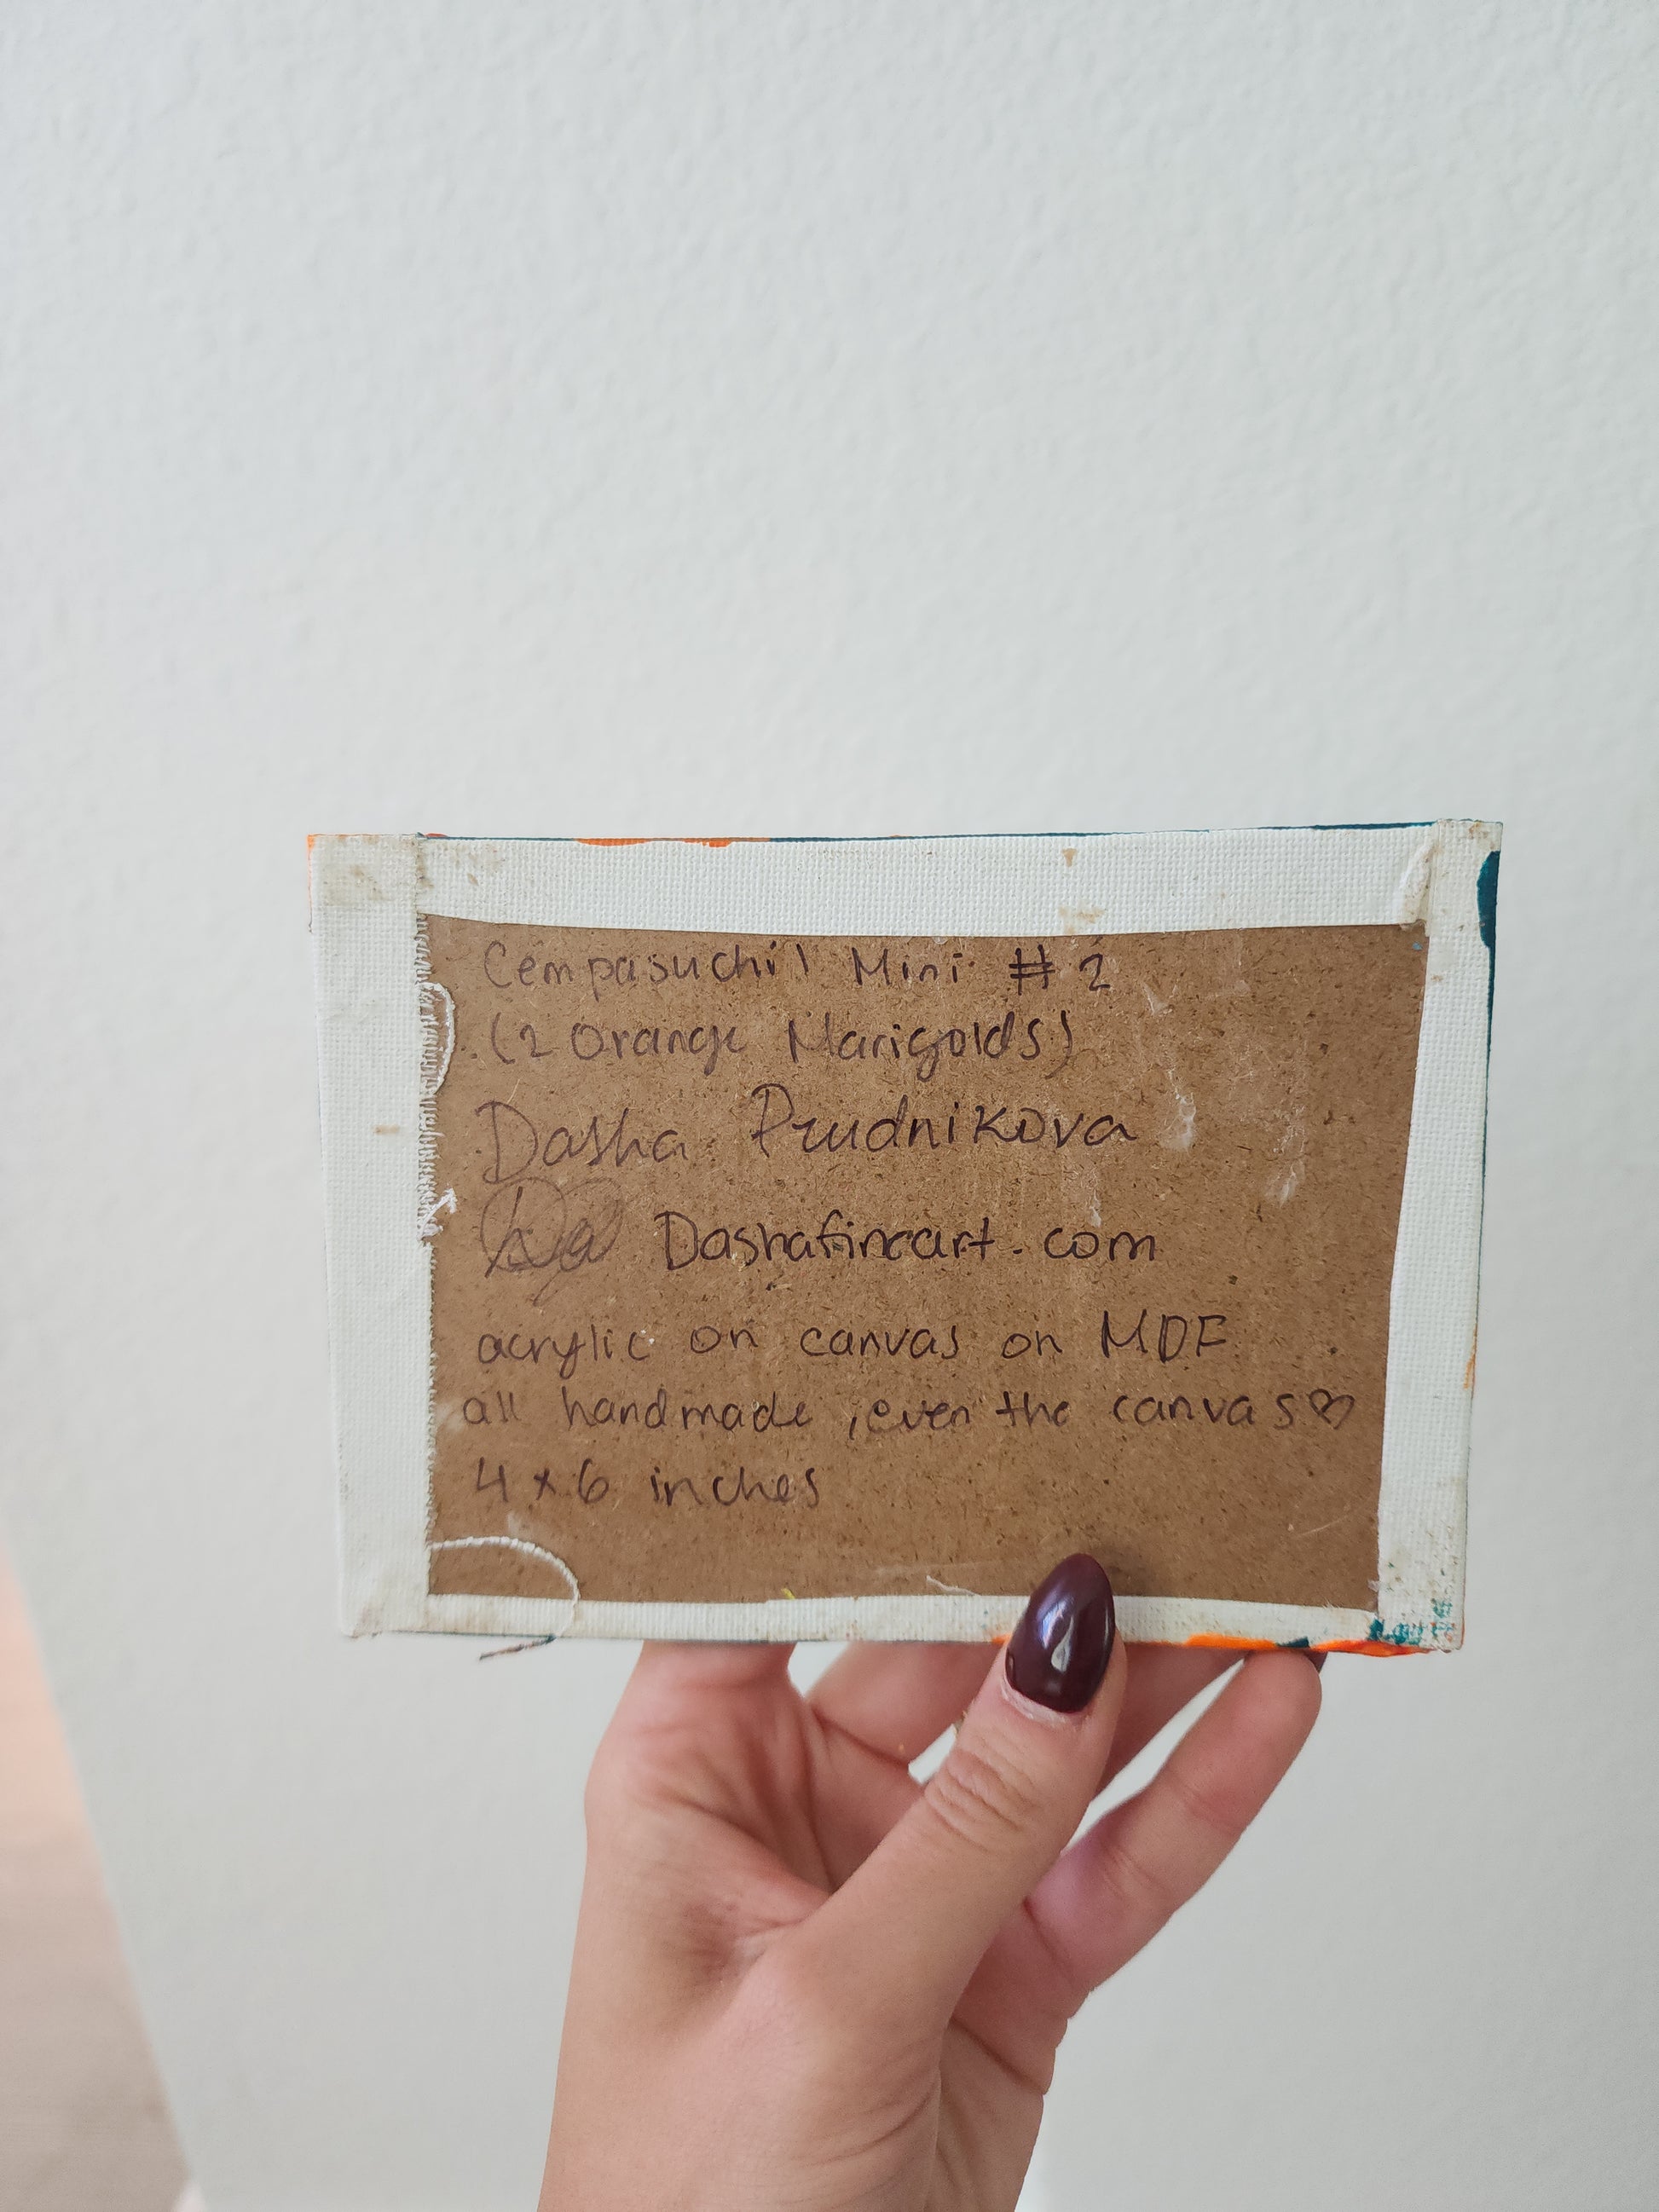 Cempasuchil Mini #2
(2 Orange Marigolds)
Dasha Prudnikova
Dashafineart.com
acrylic on canvas on MDF
all handmade, even the canvas♡
4 x 6 inches